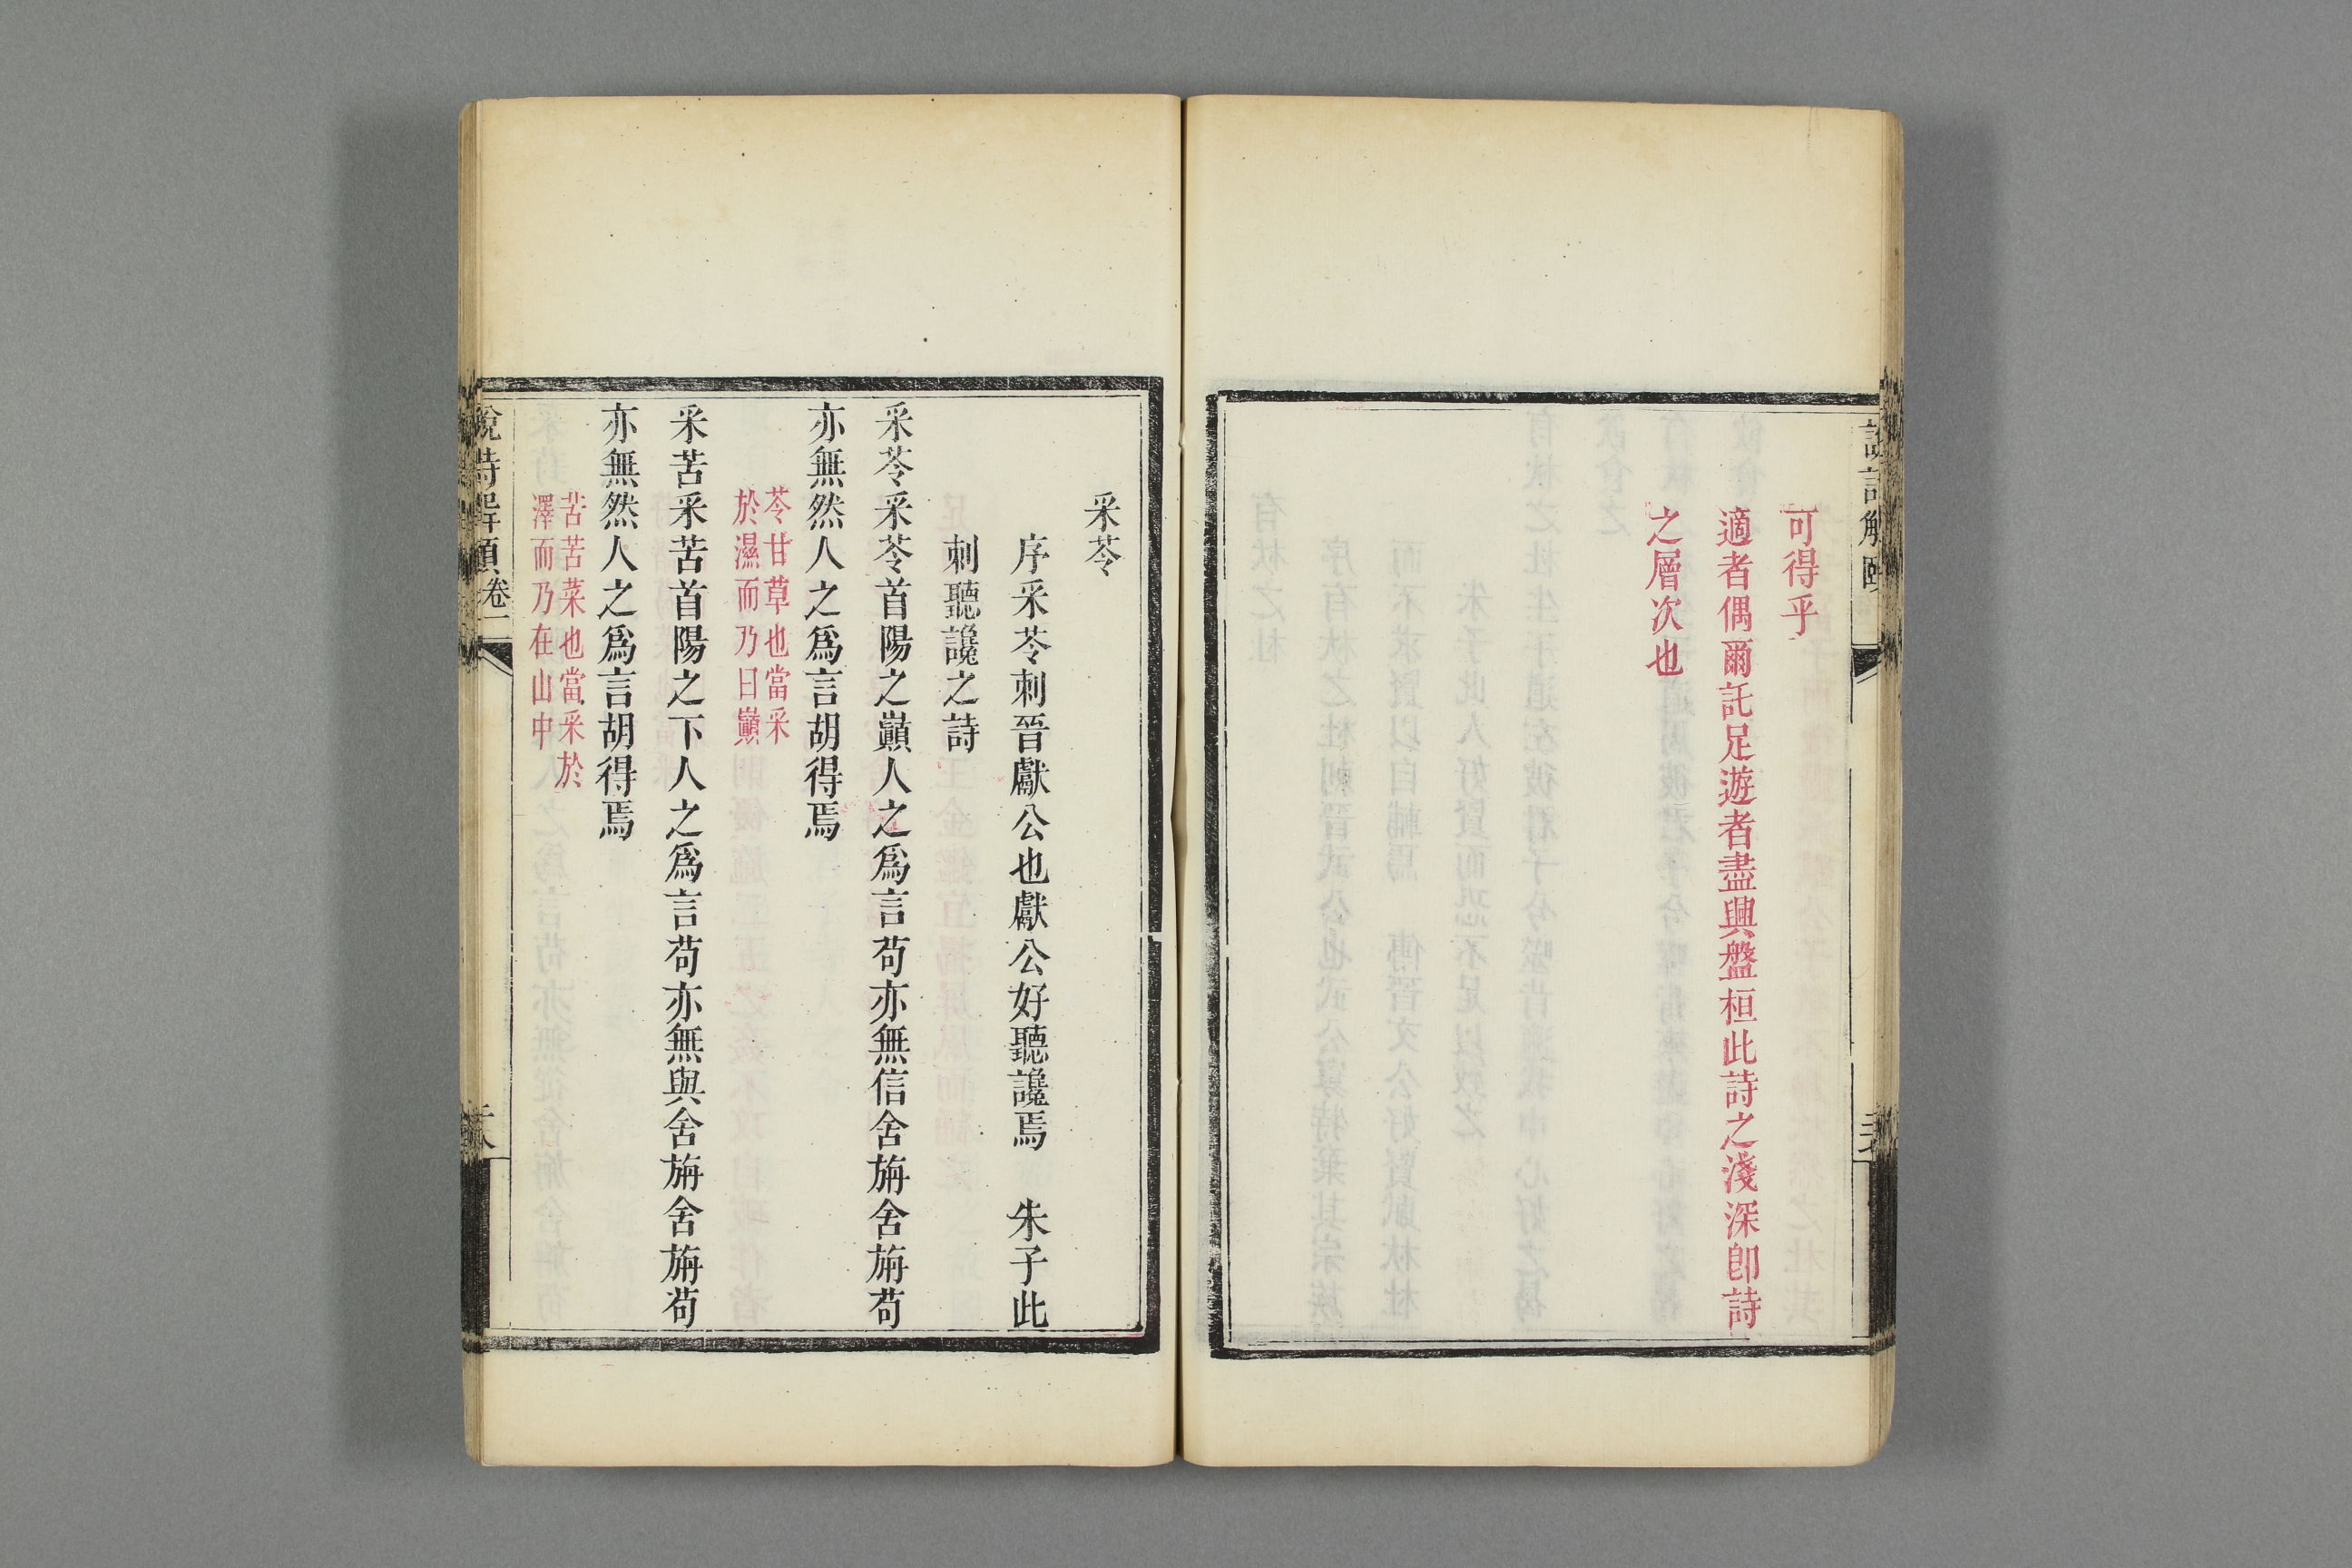 可得乎
適者偶爾託足遊者盡興盤桓此詩之淺深卽詩
之層次也
采苓
序采苓刺晉獻公也獻公好聽讒焉　朱子此
刺聽讒之詩
采苓采苓首陽之巔人之爲言苟亦無信舍旃舍旃苟
亦無然人之爲言胡得焉
苓甘草也當采
於濕而乃曰巔
采苦采苦首陽之下人之爲言苟亦無與舍旃舍旃苟
亦無然人之爲言胡得焉
苦苦菜也當采於
澤而乃在山中
說詩解頤卷二